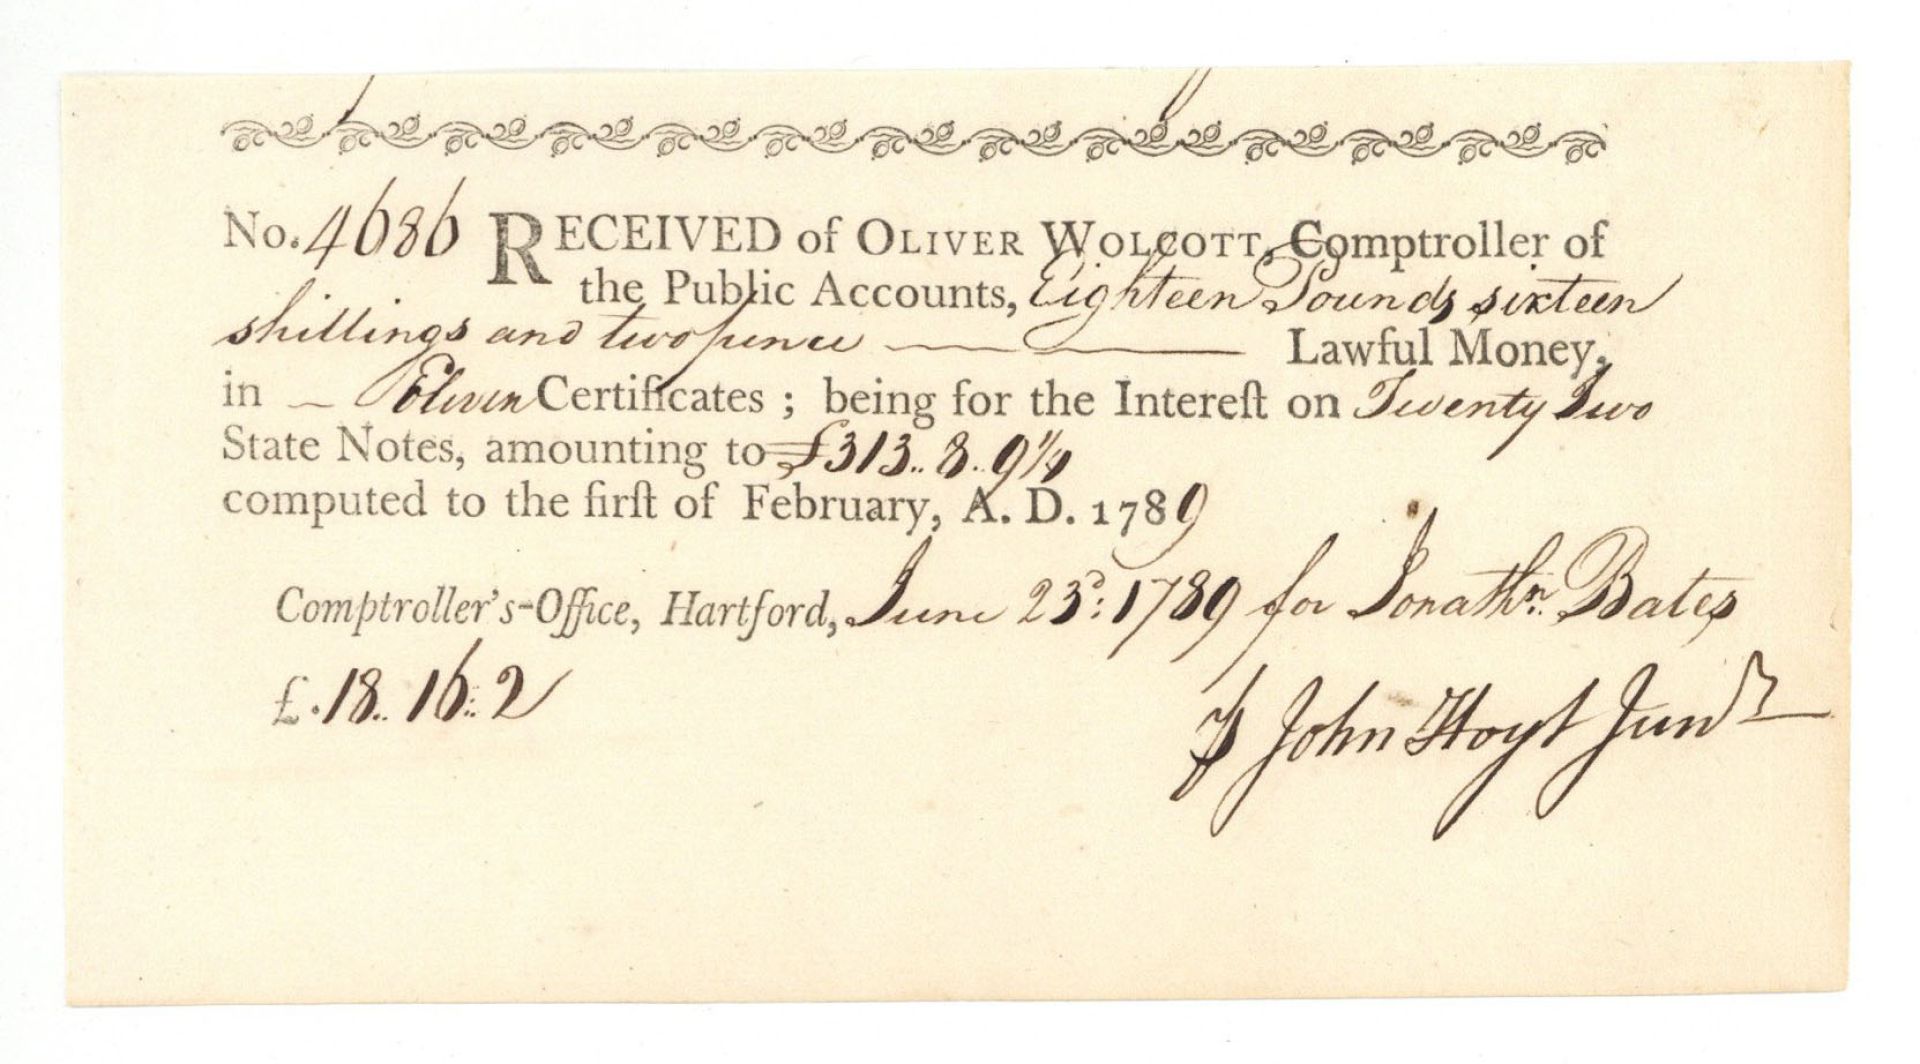 No. 4686 RECEIVED of OLIVER WOLCOTT, Comptroller of
the Public Accounts, Eighteen Pounds sixteen
shillings and two pence — — Lawful Money,
in — Eleven Certificates ; being for the Intereſt on Twenty Two
State Notes, amounting to £313.. 8.. 9 1/4
computed to the firſt of February, A. D. 1789
Comptroller's-Office, Hartford, June 23d: 1789 for Jonathn. Bates
£. 18.. 16.. 2
⅌ John Hoyt Junr